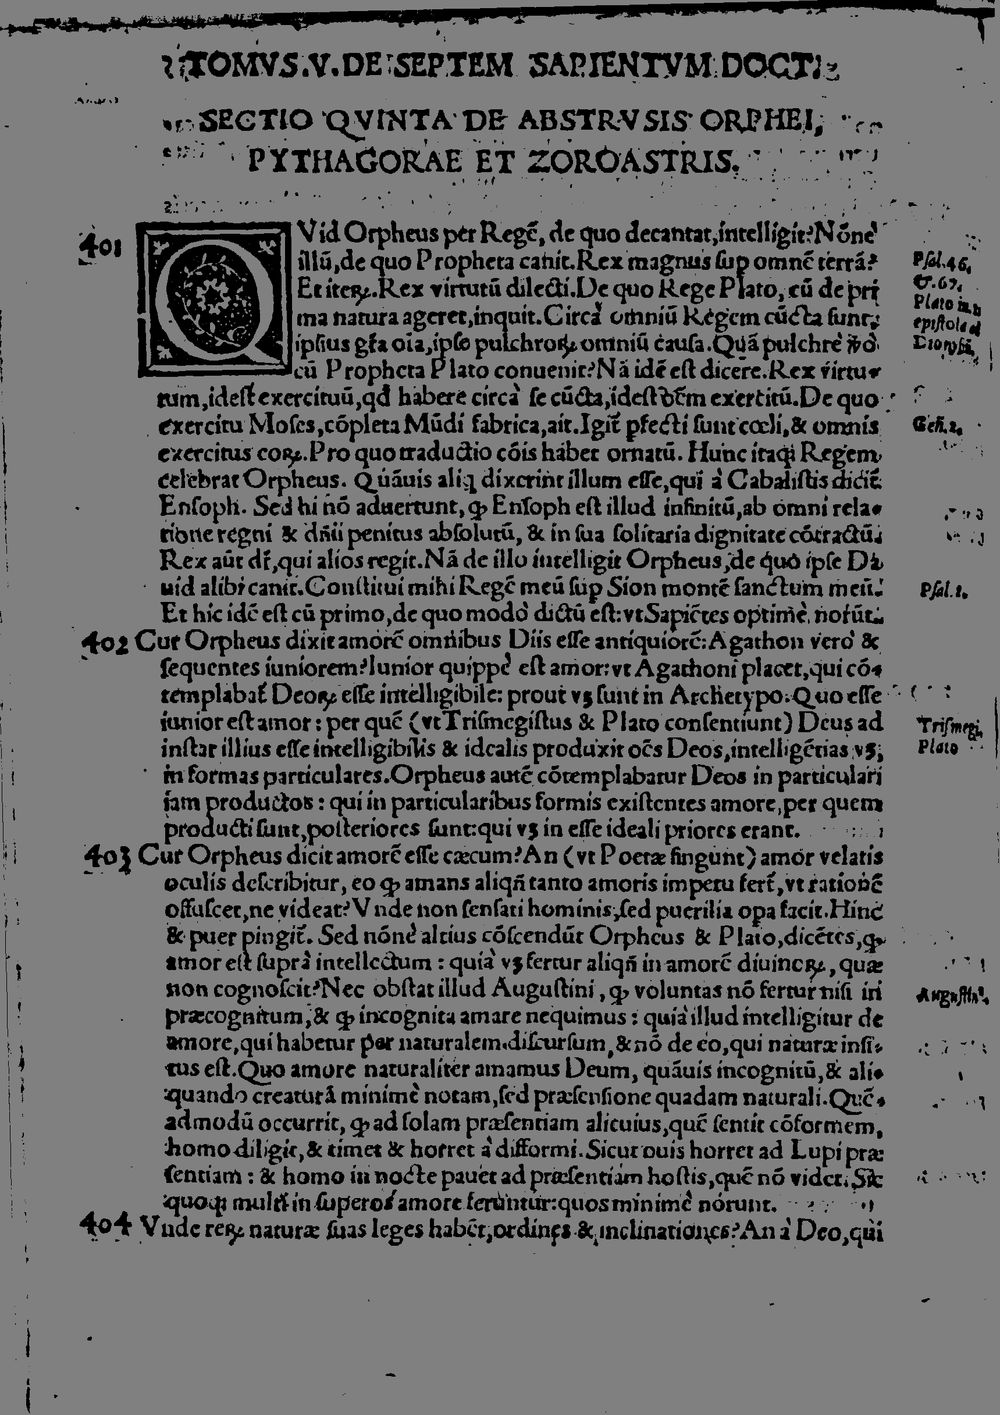 TOMVS.V. DE SEPTEM SAPIENTVM DOCT.
SECTIO QVINTA DE ABSTRVSIS ORPHEI,
PYTHAGORAE ET ZOROASTRIS.
401 QVid Orpheus per Regē, de quo decantat, intelligit? Nōne
illū, de quo Propheta canit. Rex magnus sup omnē terrā? Psal.46.
Et iteꝝ. Rex virtutū dilecti. De quo Rege Plato, cū de pri & 67.
ma natura ageret, inquit. Circà omniū Regem cūcta sunt, Plato in
ipsius gr̄a oīa, ipse pulchroꝝ omniū causa. Quā pulchrè epistola ad
cū Propheta Plato conuenit? Nā idē est dicere. Rex virtu- Dionysiū.
tum, idest exercituū, qd habere circà se cūcta, idest exercitū. De quo
exercitu Moses, cōpleta Mūdi fabrica, ait. Igit̄ pfecti sunt cœli, & omnis Geñ.2.
exercitus eoꝝ. Pro quo traductio cōis habet ornatū. Hunc itaqꝫ Regem
celebrat Orpheus. Quāuis aliq dixerint illum esse, qui à Cabalistis dicit̄
Ensoph. Sed hi nō aduertunt, ꝙ Ensoph est illud infinitū, ab omni rela-
tione regni & dn̄ii penitus absolutū, & in sua solitaria dignitate cōtractū.
Rex aūt dr̄, qui alios regit. Nā de illo intelligit Orpheus, de quo ipse Da
uid alibi canit. Constitui mihi Regē meū sup Sion montē sanctum meū. Psal.2.
Et hic idē est cū primo, de quo modò dictū est: vt Sapiētes optimè norūt.
402 Cur Orpheus dixit amorē omnibus Diis esse antiquiorē: Agathon verò &
sequentes iuniorem? Iunior quippè est amor: vt Agathoni placet, qui cō-
templabat̄ Deoꝝ esse intelligibile: prout vꝫ sunt in Archetypo. Quo esse
iunior est amor: per quē (vt Trismegistus & Plato consentiunt) Deus ad Trismegi.
instar illius esse intelligibilis & idealis produxit oēs Deos, intelligētias vꝫ, Plato
in formas particulares. Orpheus autē cōtemplabatur Deos in particulari
iam productos: qui in particularibus formis existentes amore, per quem
producti sunt, posteriores sunt: qui vꝫ in esse ideali priores erant.
403 Cur Orpheus dicit amorē esse cæcum? An (vt Poetæ fingunt) amor velatis
oculis describitur, eo ꝙ amans aliqñ tanto amoris impetu fert̄, vt rationē
offuscet, ne videat? Vnde non sensati hominis, sed puerilia opa facit. Hinc
& puer pingit̄. Sed nōnè altius cōscendūt Orpheus & Plato, dicētes, ꝙ
amor est suprà intellectum: quià vꝫ fertur aliqñ in amorē diuinoꝝ, quæ
non cognoscit? Nec obstat illud Augustini, ꝙ voluntas nō fertur nisi in Augustin⁹.
præcognitum, & ꝙ incognita amare nequimus: quià illud intelligitur de
amore, qui habetur per naturalem discursum, & nō de eo, qui naturæ insi-
tus est. Quo amore naturaliter amamus Deum, quāuis incognitū, & ali-
quando creaturā minimè notam, sed præsensione quadam naturali. Quē-
admodū occurrit, ꝙ ad solam præsentiam alicuius, quē sentit cōformem,
homo diligit, & timet & horret à difformi. Sicut ouis horret ad Lupi præ
sentiam: & homo in nocte pauet ad præsentiam hostis, quē nō videt. Sic
quoqꝫ multi in superos amore feruntur: quos minimè nōrunt.
404 Vnde reꝝ naturæ suas leges habēt, ordines & inclinationes? An à Deo, qui